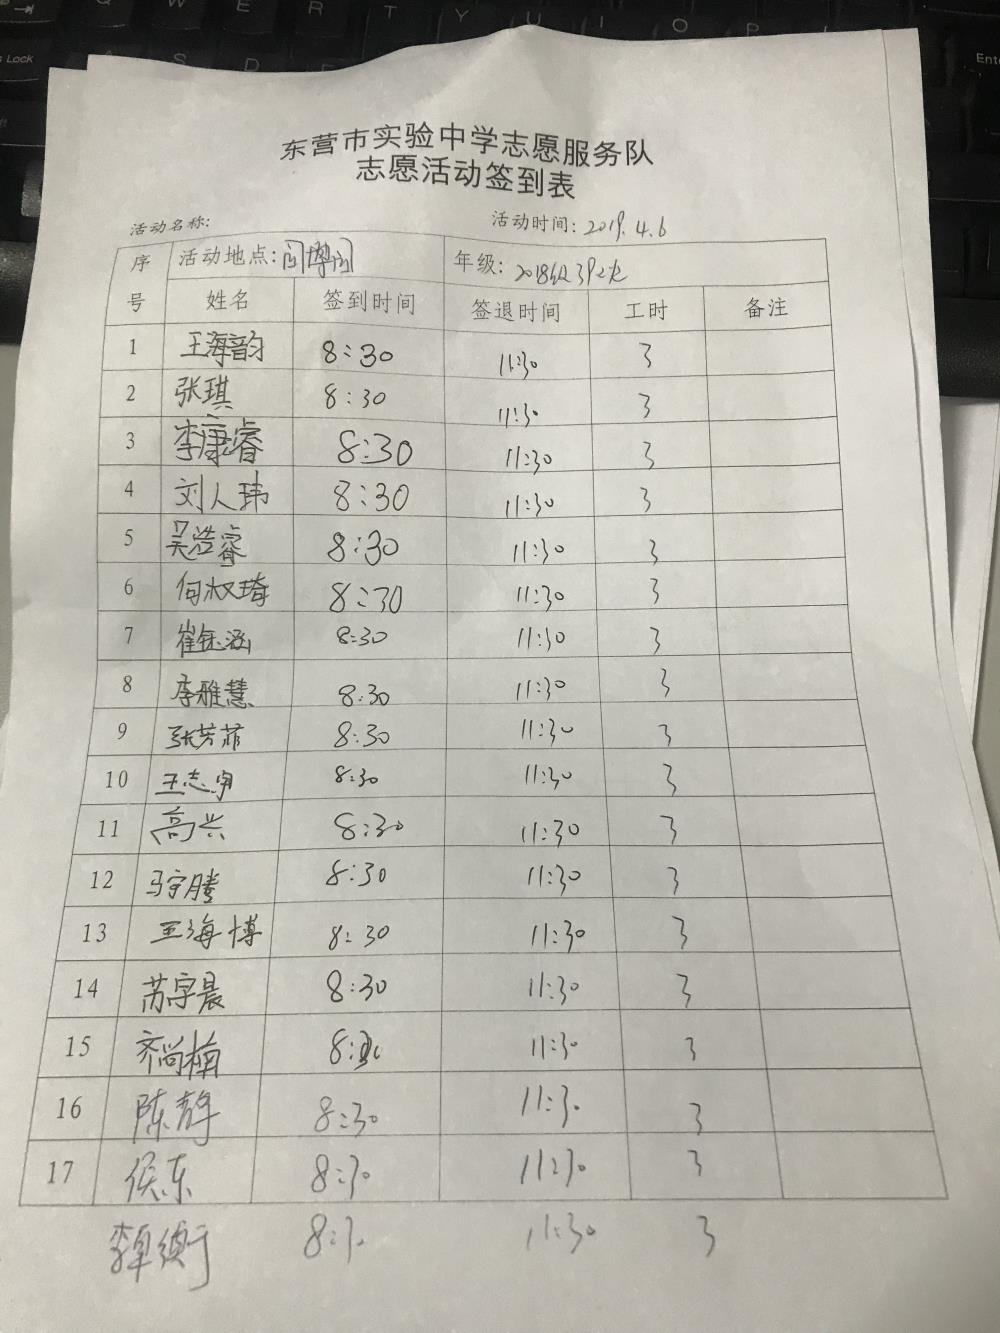 东营市实验中学志愿服务队
志愿活动签到表
活动名称: 活动时间: 2019.4.6
序号 活动地点: 年级: 2018级
姓名 签到时间 签退时间 工时 备注
1 王海韵 8:30 11:30 3
2 张琪 8:30 11:30 3
3 李康睿 8:30 11:30 3
4 刘人玮 8:30 11:30 3
5 吴浩睿 8:30 11:30 3
6 何权琦 8:30 11:30 3
7 崔钰涵 8:30 11:30 3
8 李雅慧 8:30 11:30 3
9 张芳菲 8:30 11:30 3
10 王志宇 8:30 11:30 3
11 高兴 8:30 11:30 3
12 马宇腾 8:30 11:30 3
13 王海博 8:30 11:30 3
14 苏宇晨 8:30 11:30 3
15 齐尚楠 8:30 11:30 3
16 陈静 8:30 11:30 3
17 侯东 8:30 11:30 3
李卓衡 8:30 11:30 3